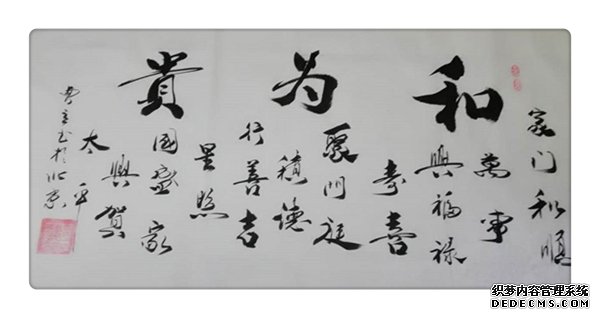 和为貴
家门和順
萬事
興福禄
寿喜
聚門庭
積德
行善吉
星照
國盛家
興賀
太平
织梦内容管理系统
DEDECMS.COM